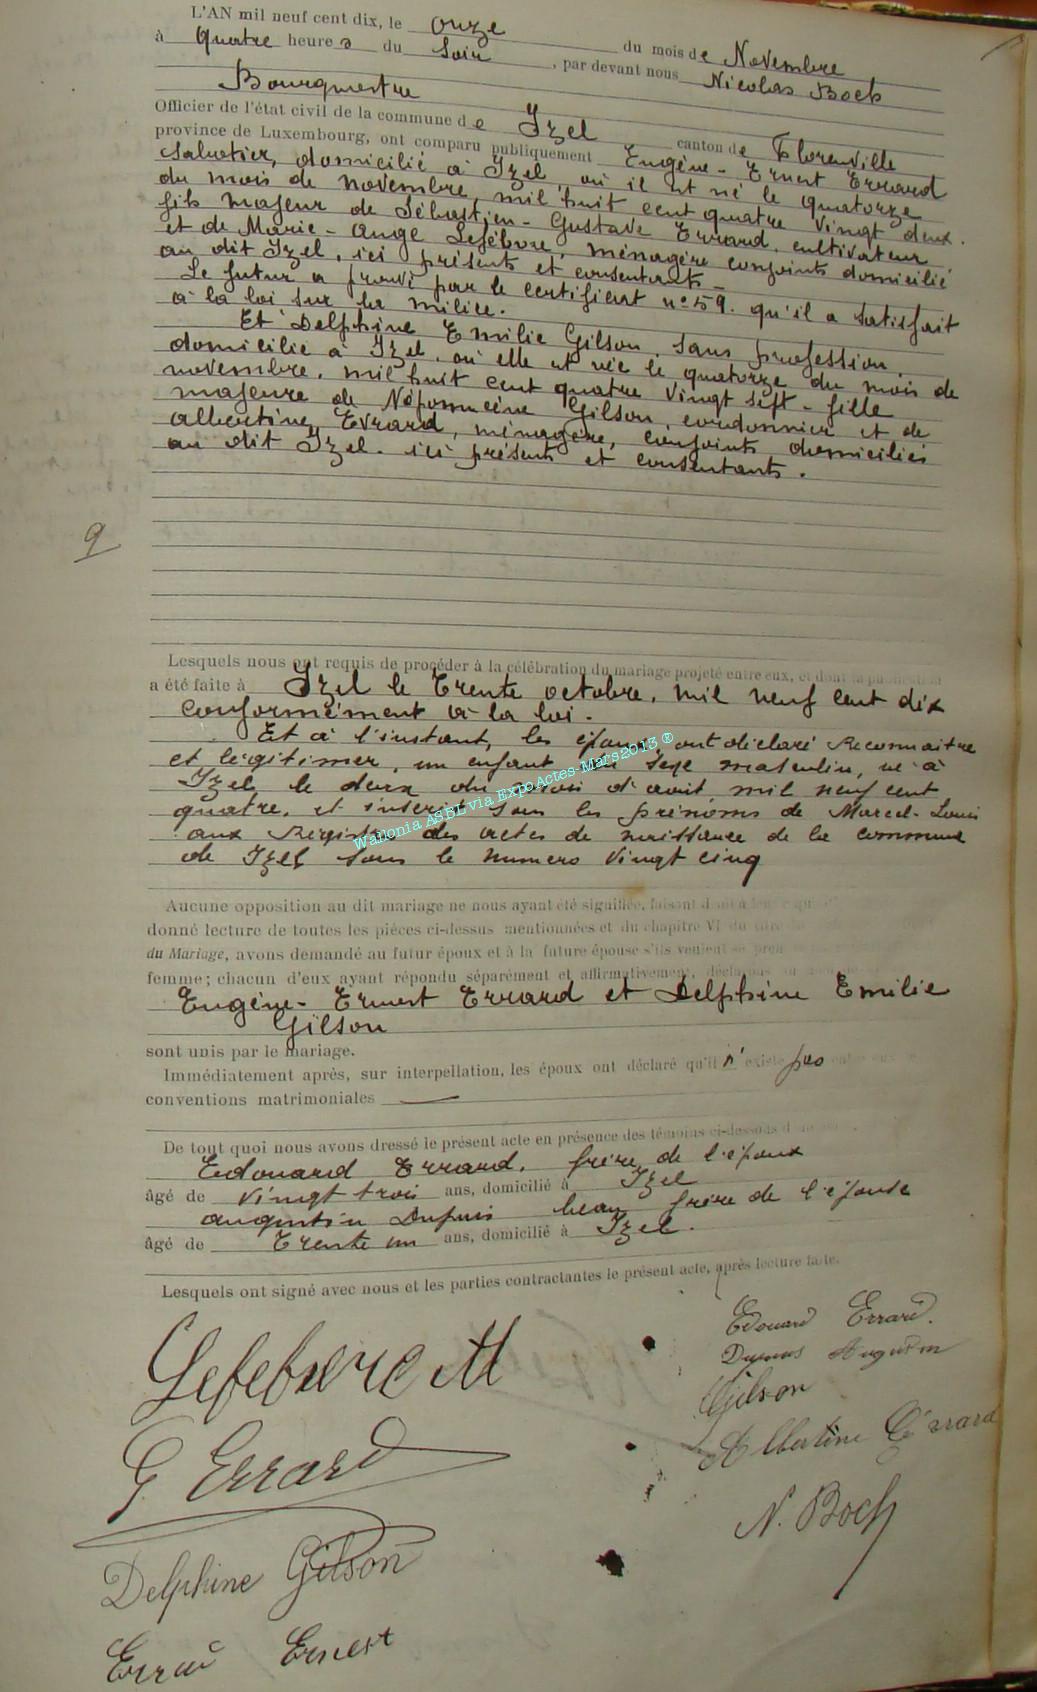 L'AN mil neuf cent dix, le onze du mois de Novembre
à Quatre heures du Soir, par devant nous Nicolas Boch
Bourgmestre
Officier de l'état civil de la commune de Izel canton de Florenville
province de Luxembourg, ont comparu publiquement Eugène-Ernest Errard
Sabotier, domicilié à Izel, où il est né le quatorze
du mois de novembre mil huit cent quatre vingt deux.
fils majeur de Sébastien-Gustave Errard, cultivateur
et de Marie-Ange Lefébvre, ménagère conjoints domicilié
au dit Izel, ici présents et consentants-
Le futur a prouvé par le certificat n° 59. qu'il a satisfait
à la loi sur la milice.
Et Delphine Emilie Gilson, sans profession,
domicilié à Izel, où elle est née le quatorze du mois de
novembre, mil huit cent quatre vingt sept-fille
majeure de Népomucène Gilson, cordonnier et de
albertine Evrard, ménagère, conjoints domiciliés
au dit Izel. ici présents et consentants.
9
Lesquels nous ont requis de procéder à la célébration du mariage projeté entre eux, et dont la publication
a été faite à Izel le Trente octobre, mil neuf cent dix
conformément à la loi.
Et à l'instant, les époux ont déclaré Reconnaître
et légitimer, un enfant du sexe masculin, né à
Izel le deux du mois d'août mil neuf cent
quatre, et inscrit sous les prénoms de Marcel-Louis
aux Registres des actes de naissance de la commune
de Izel sous le numero vingt cinq
Wallonia ASBL via ExpoActes-Mars2013 ®
Aucune opposition au dit mariage ne nous ayant été signifiée, faisant droit à leur
donné lecture de toutes les pièces ci-dessus mentionnées et du chapitre VI du titre
du Mariage, avons demandé au futur époux et à la future épouse s'ils veulent se
femme; chacun d'eux ayant répondu séparément et affirmativement, déclarons
Eugène-Ernest Errard et Delphine Emilie
Gilson
sont unis par le mariage.
Immédiatement après, sur interpellation, les époux ont déclaré qu'il n'existe pas entre eux
conventions matrimoniales
De tout quoi nous avons dressé le présent acte en présence des témoins ci-dessous
Edouard Errard, frère de l'époux
âgé de Vingt trois ans, domicilié à Izel
augustin Dupuis beau frère de l'épouse
âgé de Trente un ans, domicilié à Izel.
Lesquels ont signé avec nous et les parties contractantes le présent acte, après lecture faite.
Edouard Errard.
Lefebvre M
Augustin
Gilson
G. Errard
Albertine Evrard
N. Boch
Delphine Gilson
Ernest